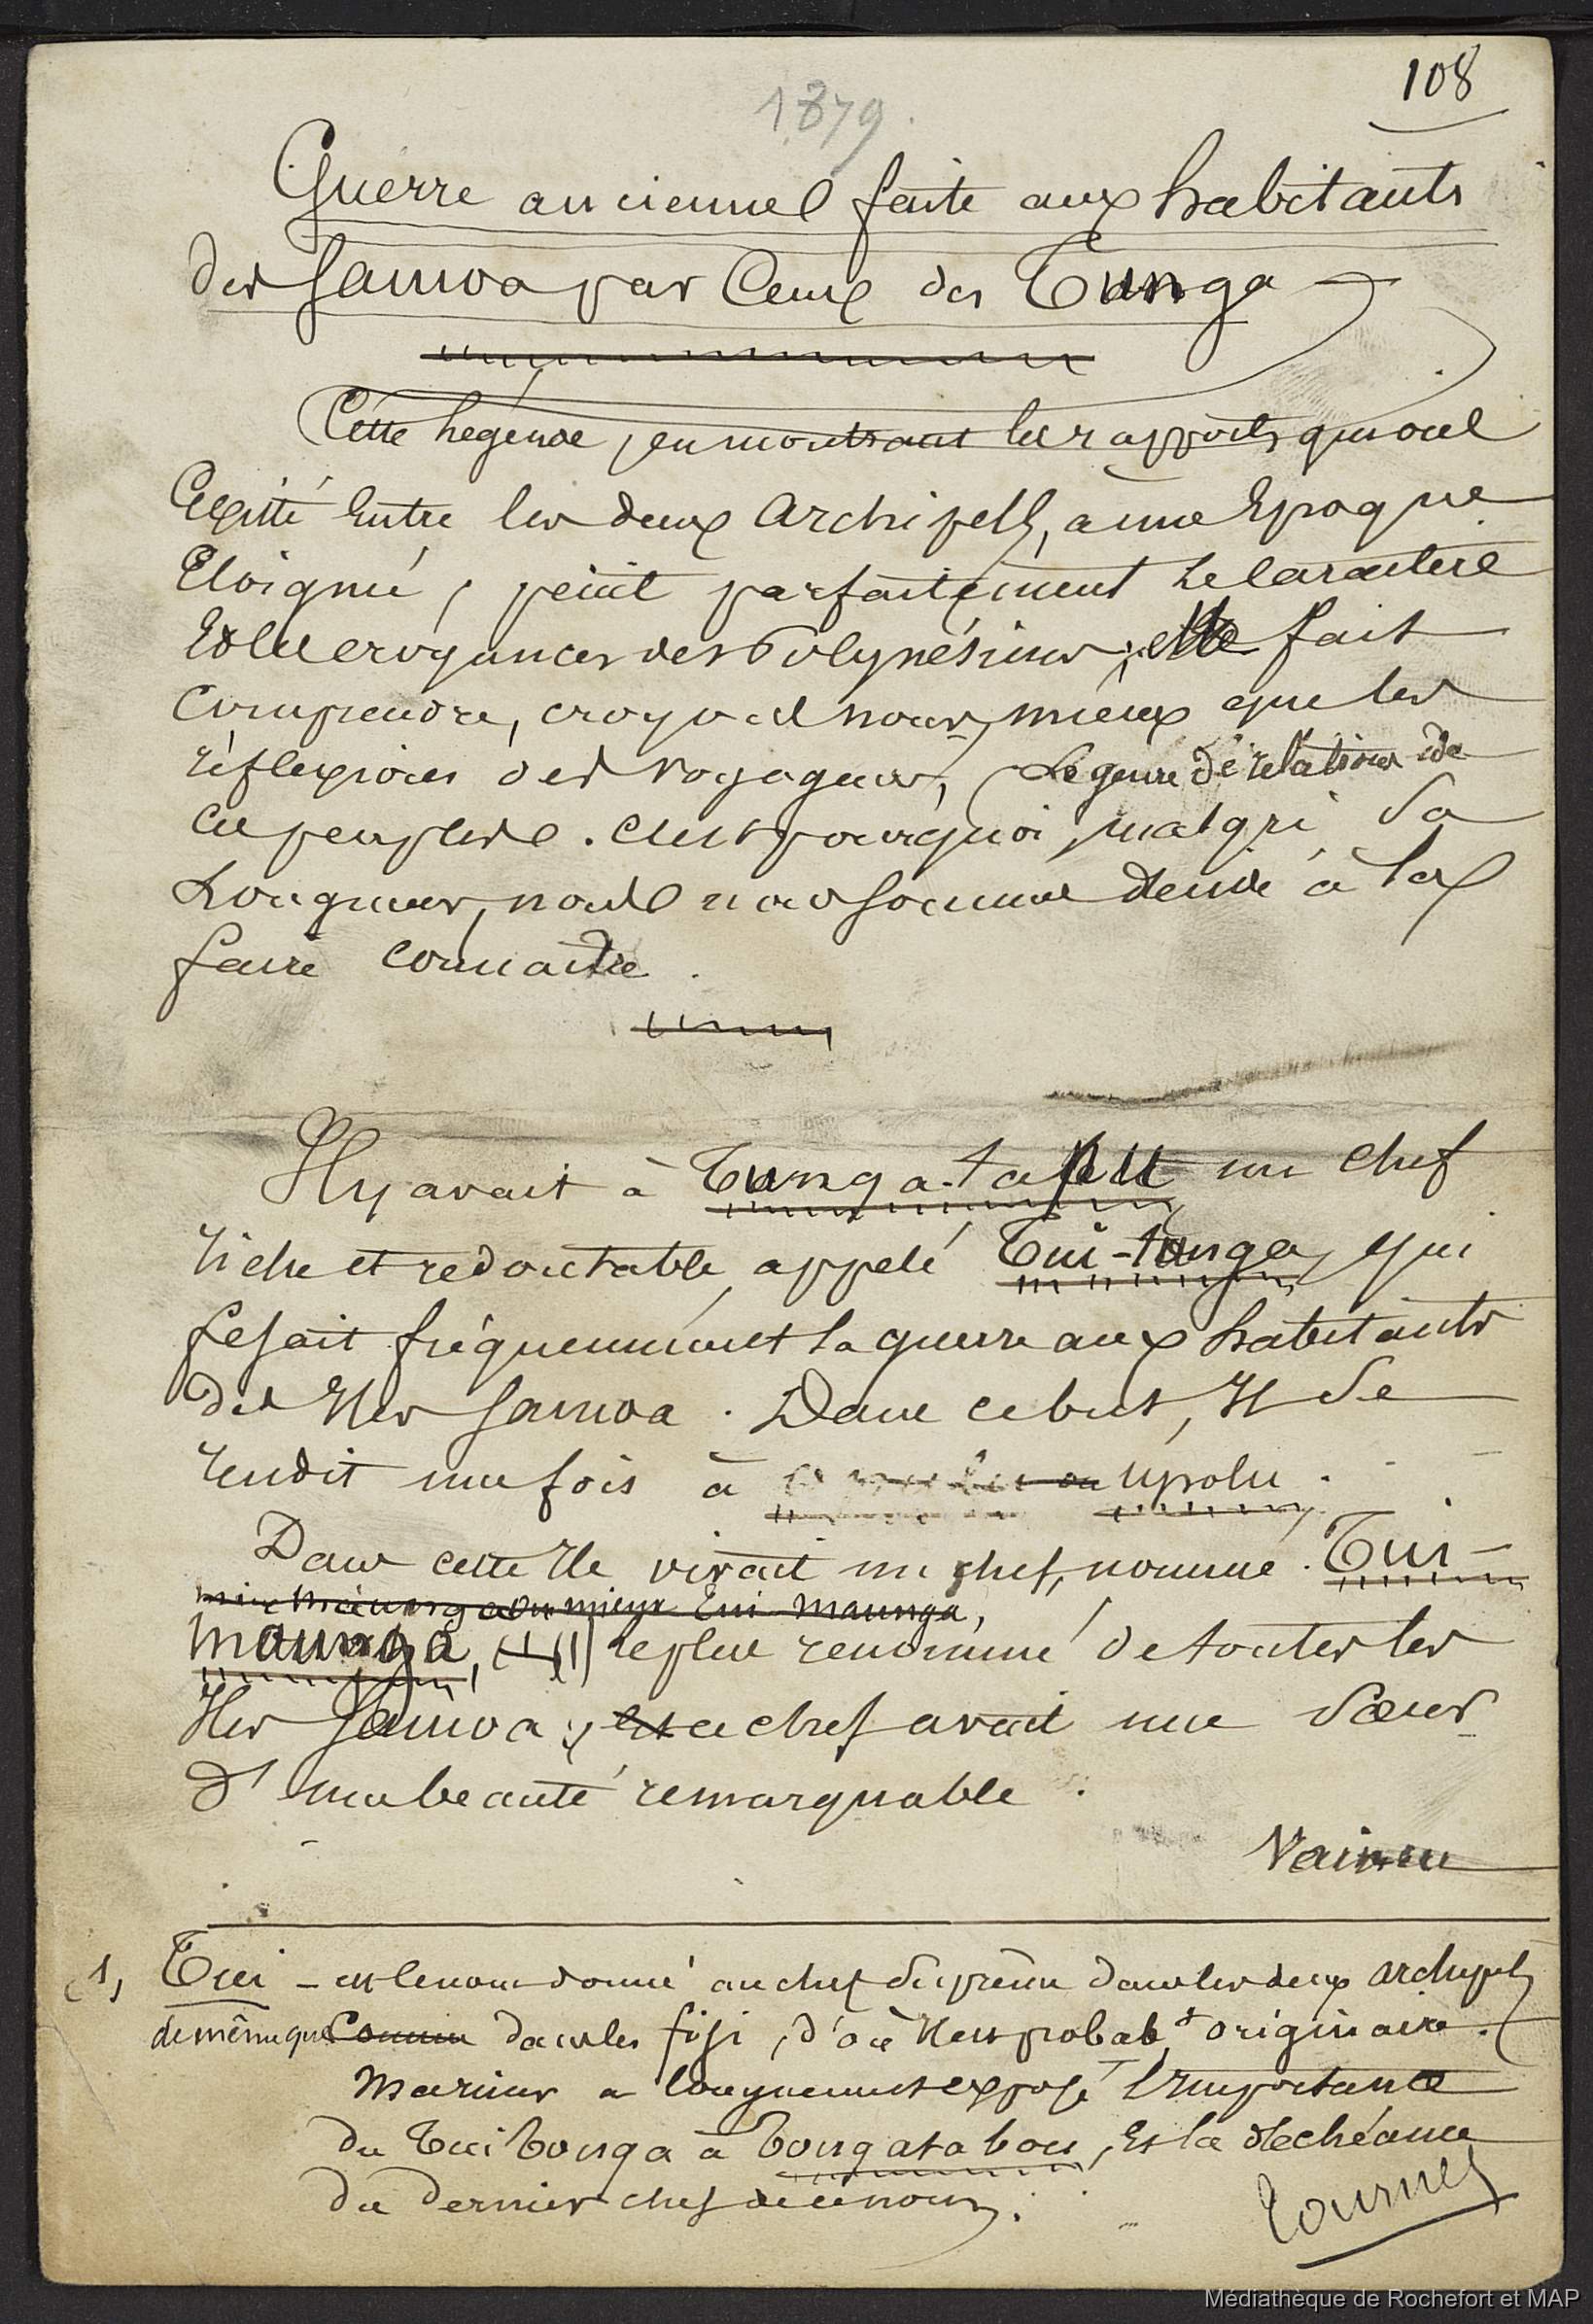 108
1879.
Guerre ancienne faite aux habitants
des Samoa par ceux des Tunga
Cette légende, en montrant les rapports qui ont
Existé Entre les deux Archipels, a une Epoque
Eloignée, peint parfaitement le caractère
Et les croyances des Polynésiens ; elle fait
Comprendre, croyons nous, mieux que les
réflexions des voyageurs, le genre de relations de
ces peuples. C'est pourquoi, malgré sa
Longueur, nous nous sommes décidé à la
faire connaitre.
Il y avait à Tunga-tapu un chef
riche et redoutable, appelé Tui-tunga, qui
fesait fréquemment la guerre aux habitants
des Iles Samoa. Dans ce but, Il se
rendit une fois à ou Upolu.
Dans cette Ile vivait un chef, nommé Tui-
ou mieux Tui-maunga,
maunga, (1) le plus renommé de toutes les
Iles Samoa ; et ce chef avait une sœur
d'une beauté remarquable.
(1) Tui - est le nom donné au chef suprême dans les deux archipels
de même que Comme dans les fiji, d'où Il est probabt originaire.
Mariner a longuement exposé l'Importance
du Tui Tonga à Tongatabou, Et la déchéance
du dernier chef de ce nom.
Tournez
Médiathèque de Rochefort et MAP